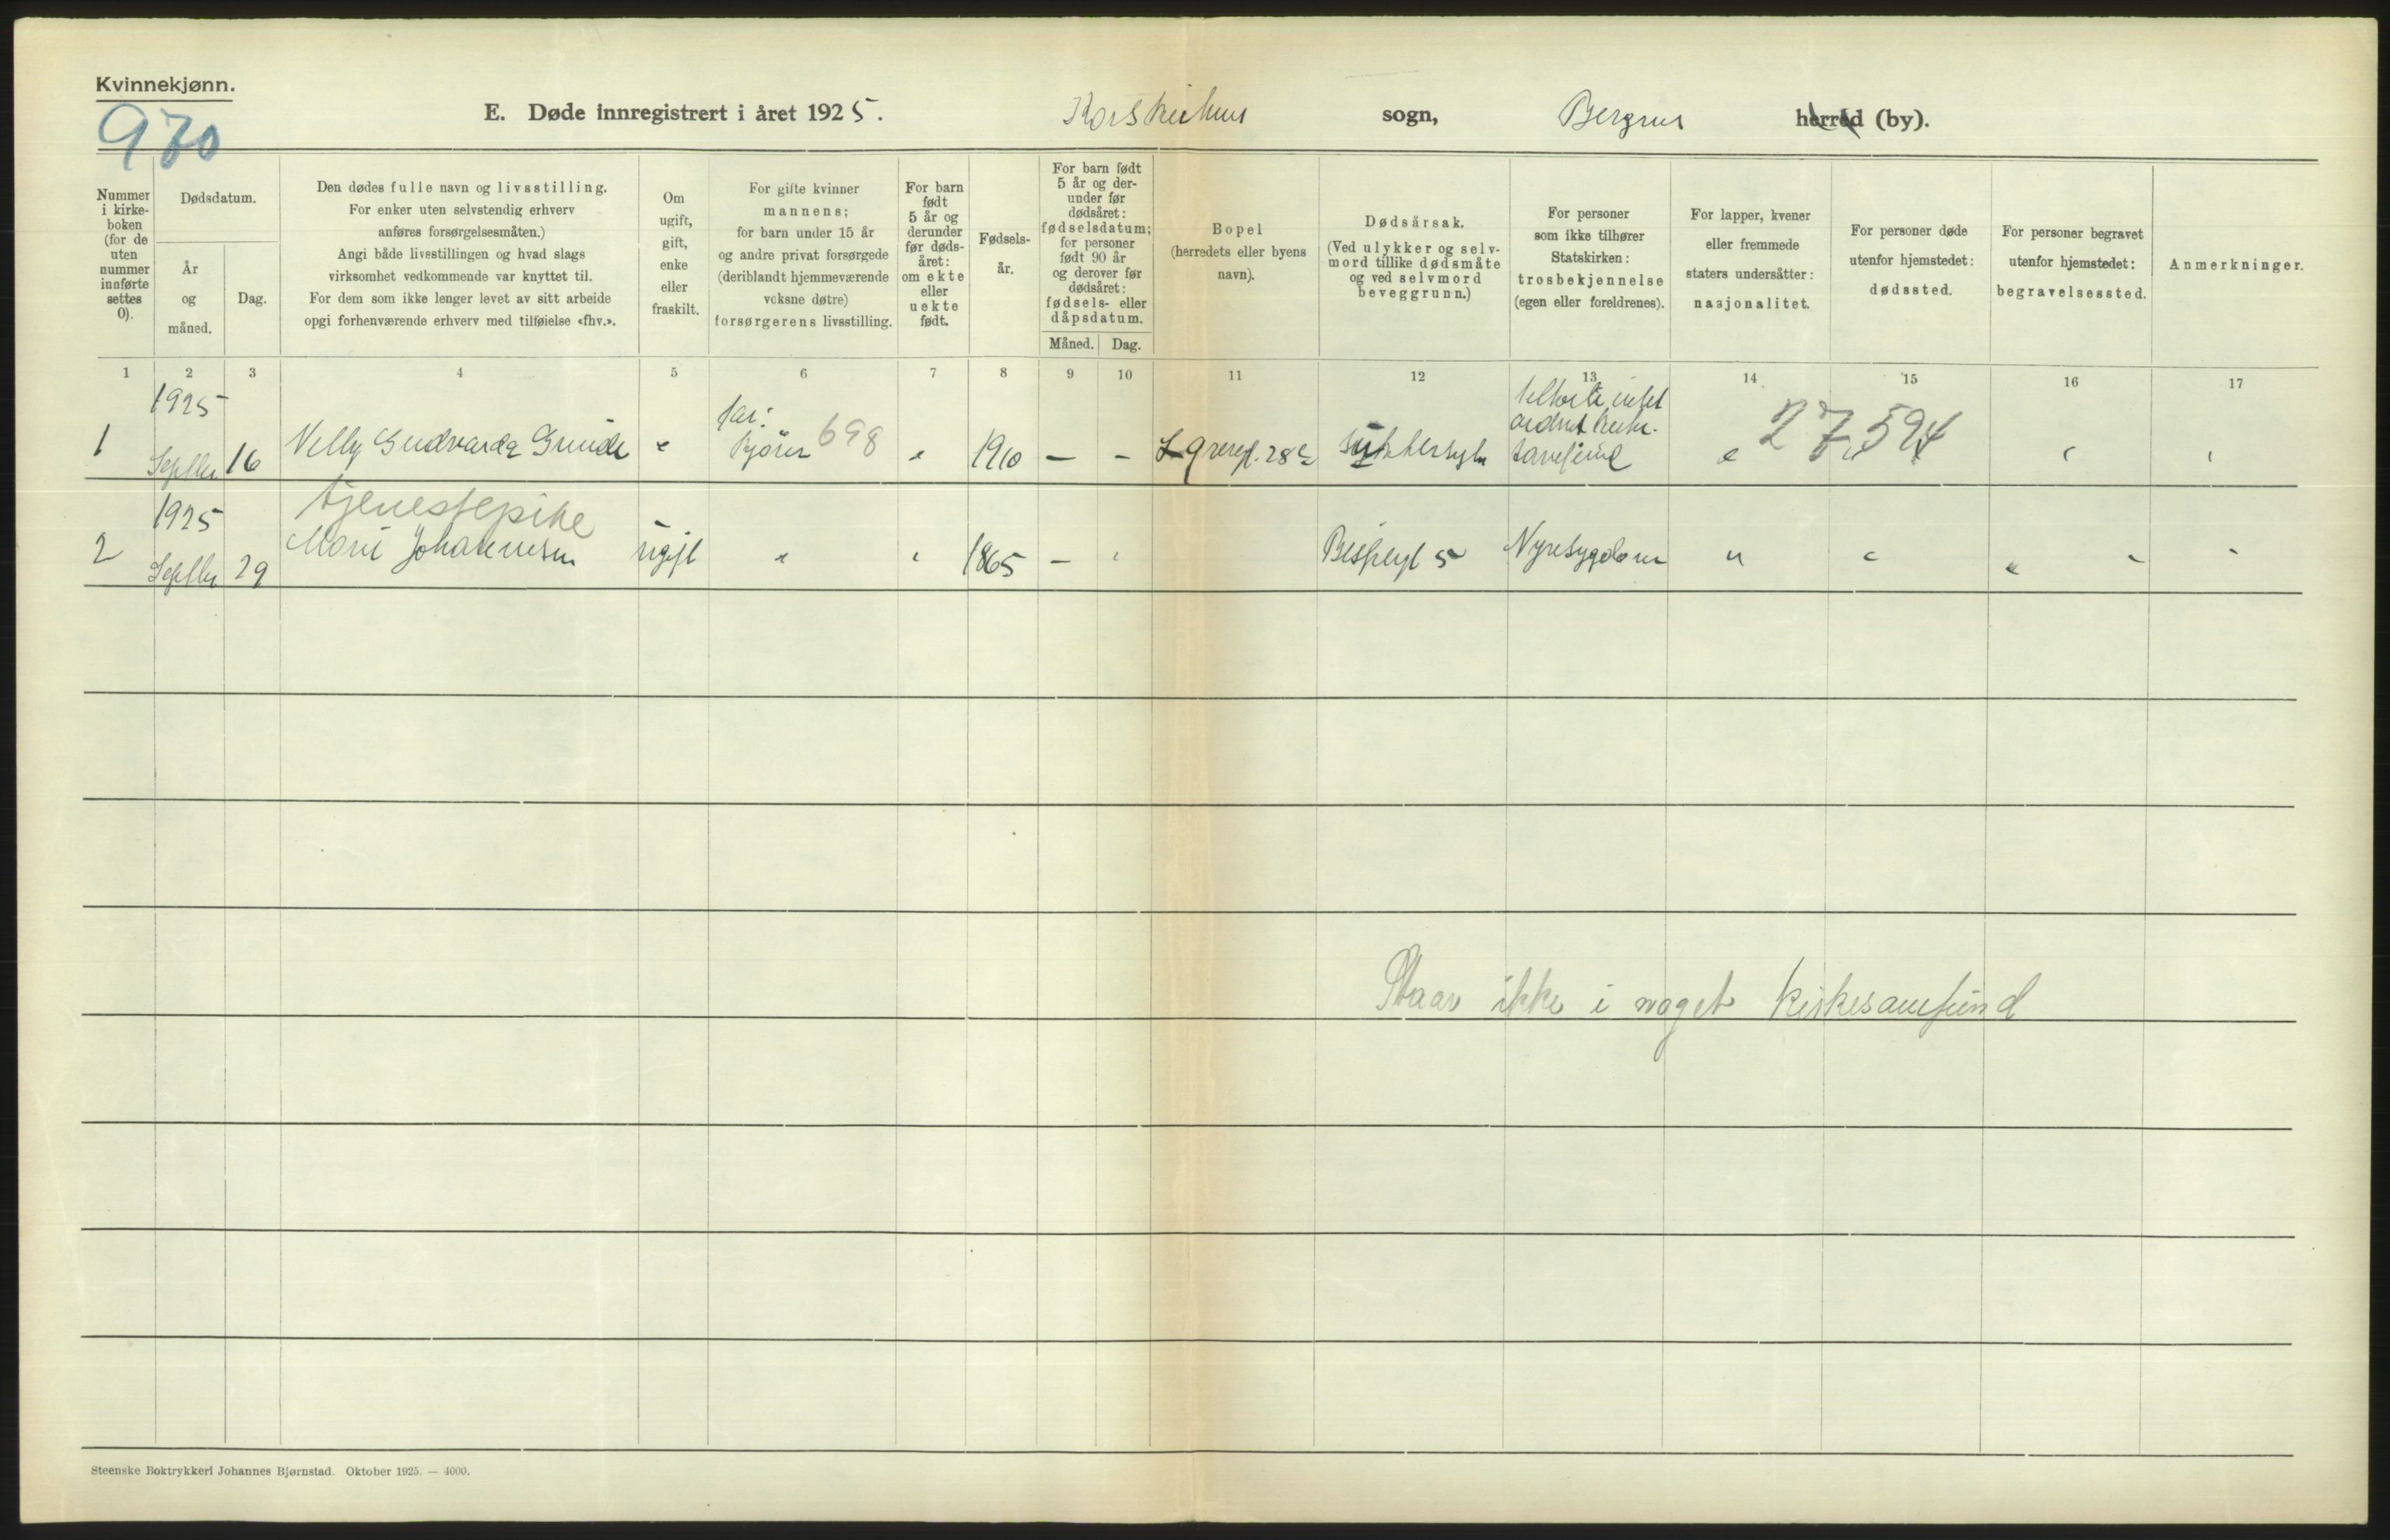 Kvinnekjønn.
970
E. Døde innregistrert i året 1925. Korskirkens sogn, Bergens herred (by).
Nummer i kirke-boken (for de uten nummer innførte settes 0).
Dødsdatum.
År og måned.
Dag.
Den dødes fulle navn og livsstilling.
For enker uten selvstendig erhverv
anføres forsørgelsesmåten.)
Angi både livsstillingen og hvad slags
virksomhet vedkommende var knyttet til.
For dem som ikke lenger levet av sitt arbeide
opgi forhenværende erhverv med tilføielse «fhv.».
Om ugift, gift, enke eller fraskilt.
For gifte kvinner
mannens;
for barn under 15 år
og andre privat forsørgede
(deriblandt hjemmeværende
voksne døtre)
forsørgerens livsstilling.
For barn født 5 år og derunder før døds-året: om ekte eller uekte født.
Fødsels-år.
For barn født 5 år og der-under før dødsåret: fødselsdatum; for personer født 90 år og derover før dødsåret: fødsels- eller dåpsdatum.
Måned. Dag.
Bopel
(herredets eller byens navn).
Dødsårsak.
(Ved ulykker og selv-
mord tillike dødsmåte
og ved selvmord
beveggrunn.)
For personer
som ikke tilhører
Statskirken:
trosbekjennelse
(egen eller foreldrenes).
For lapper, kvener
eller fremmede
staters undersåtter:
nasjonalitet.
For personer døde
utenfor hjemstedet:
dødssted.
For personer begravet
utenfor hjemstedet:
begravelsessted.
Anmerkninger.
1 2 3 4 5 6 7 8 9 10 11 12 13 14 15 16 17
1925
1 Septbr 16 Nelly Gudvarda Grinde " far: 698 " 1910 — — 28 " 27,594 " "
tjenestepike
1925
2 Septbr 29 Marie Johannesen ugift " " 1865 — " 5 Nyresygdom " " " " "
Staar ikke i noget kirkesamfund
Steenske Boktrykkeri Johannes Bjørnstad. Oktober 1925. — 4000.